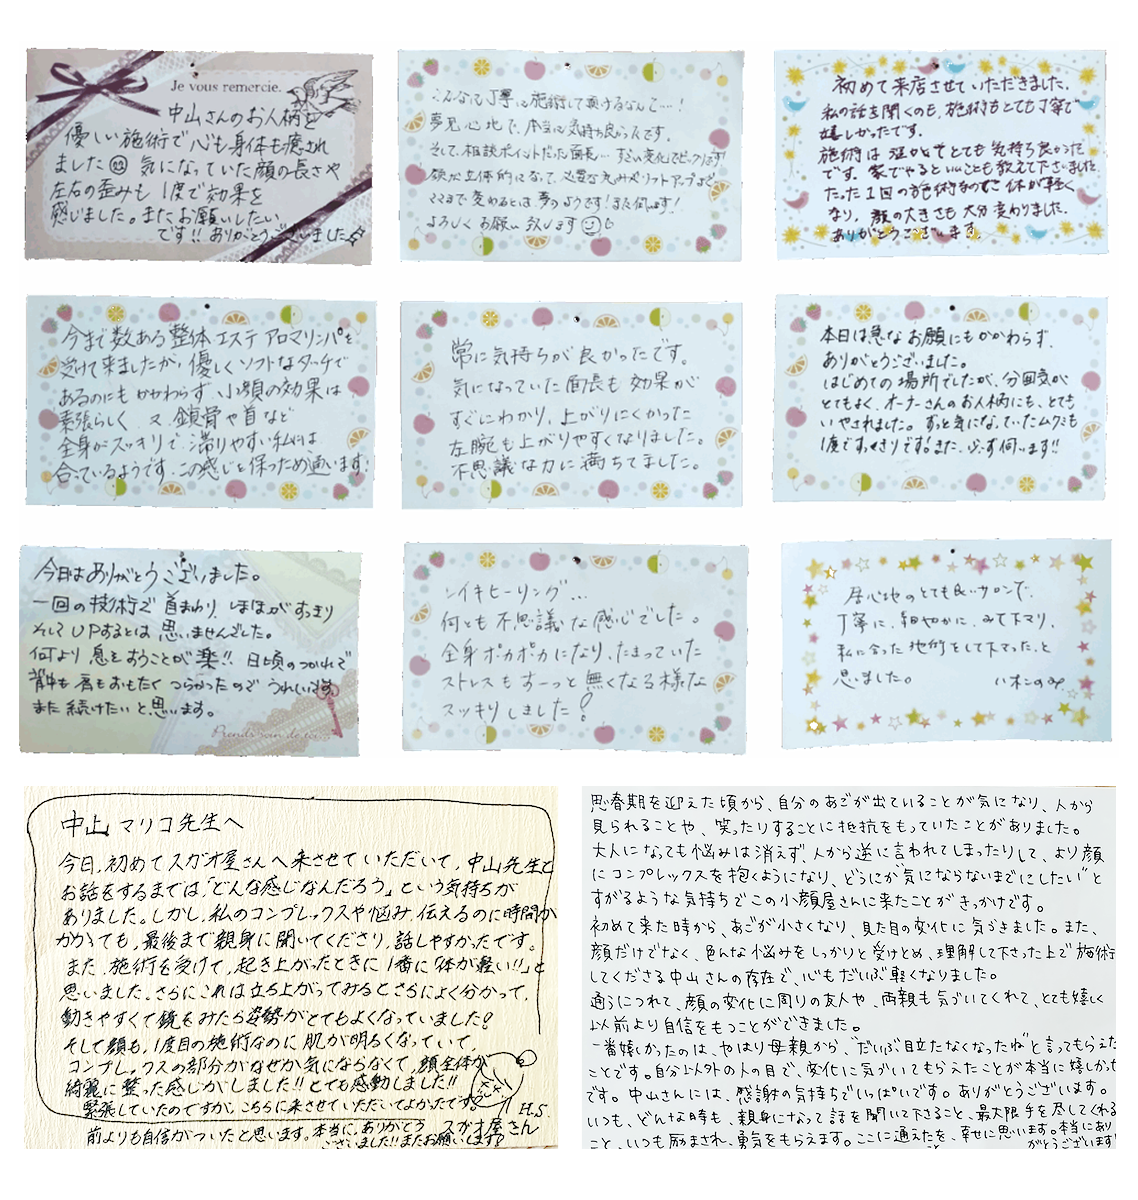 Je vous remercie.
中山さんのお人柄と
優しい施術で心も身体も癒され
ました 気になっていた顔の長さや
左右の歪みも1度で効果を
感じました。またお願いしたい
です!! ありがとうございました
こんなに丁寧に施術して頂けるなんて…!
夢見心地で、本当に気持ち良かったです。
そして、相談ポイントだった面長… すごい変化でビックリです!
顔が立体的になって、必要な丸みやリフトアップまで
ここまで変わるとは夢のようです!また伺います!
よろしくお願い致します
初めて来店させていただきました。
私の話を聞くのも、施術もとても丁寧で
嬉しかったです。
施術は温かくてとても気持ち良かった
です。家でやるといいことも教えて下さいました
たった1回の施術なのに体が軽く
なり、顔の大きさも大分変わりました。
ありがとうございます。
今まで数ある整体エステ アロマリンパを
受けて来ましたが、優しくソフトなタッチで
あるのにもかかわらず、小顔の効果は
素晴らしく 又、鎖骨や首など
全身がスッキリで、滞りやすい私には
合っているようです。この感じを保つため通います!
常に気持ちが良かったです。
気になっていた面長も効果が
すぐにわかり、上がりにくかった
左腕も上がりやすくなりました。
不思議な力に満ちてました。
本日は急なお願いにもかかわらず、
ありがとうございました。
はじめての場所でしたが、雰囲気が
とてもよく、オーナーさんのお人柄にも、とても
いやされました。ずっと気になっていたムクミも
1度ですっきりです!また、必ず伺います!!
今日はありがとうございました。
一回の技術で首まわり、ほほがすっきり
そしてUPするとは思いませんでした。
何より息をすうことが楽!! 日頃のつかれで
背中も肩もおもたくつらかったのでうれしいです
また続けたいと思います。
Prends soin de toi
レイキヒーリング…
何とも不思議な感じでした。
全身ポカポカになり、たまっていた
ストレスもすーっと無くなる様な
スッキリしました!
居心地のとても良いサロンで、
丁寧に、細やかに、みて下マリ、
私に合った施術をして下マった、と
思いました。
中山マリコ先生へ
今日、初めてスガオ屋さんへ来させていただいて、中山先生と
お話をするまでは「どんな感じなんだろう」という気持ちが
ありました。しかし、私のコンプレックスや悩み、伝えるのに時間が
かかっても、最後まで親身に聞いてくださり、話しやすかったです。
また、施術を受けて、起き上がったときに1番に「体が軽い!!」と
思いました。さらにこれは立ち上がってみるとさらによく分かって、
動きやすくて鏡をみたら姿勢がとてもよくなっていました!
そして顔も、1度目の施術なのに肌が明るくなっていて、
コンプレックスの部分がなぜか気にならなくて、顔全体が
綺麗に整った感じがしました!!とても感動しました!!
緊張していたのですが、こちらに来させていただいてよかったです。
H.S.
前よりも自信がついたと思います。本当に、ありがとう スガオ屋さん
ございました!!またお願いします!
思春期を迎えた頃から、自分のあごが出ていることが気になり、人から
見られることや、笑ったりすることに抵抗をもっていたことがありました。
大人になっても悩みは消えず、人から逆に言われてしまったりして、より顔
にコンプレックスを抱くようになり、どうにか気にならないまでにしたい"と
すがるような気持ちでこの小顔屋さんに来たことがきっかけです。
初めて来た時から、あごが小さくなり、見た目の変化に気づきました。また、
顔だけでなく、色んな悩みをしっかりと受けとめ、理解して下さった上で施術
してくださる中山さんの存在で、心もだいぶ軽くなりました。
通うにつれて、顔の変化に周りの友人や、両親も気づいてくれて、とても嬉しく
以前より自信をもつことができました。
一番嬉しかったのは、やはり母親から、"だいぶ目立たなくなったね"と言ってもらえた
ことです。自分以外の人の目で、変化に気づいてもらえたことが本当に嬉しかった
です。中山さんには、感謝の気持ちでいっぱいです。ありがとうございます。
いつも、どんな時も、親身になって話を聞いて下さること、最大限手を尽してくれる
こと、いつも励まされ、勇気をもらえます。ここに通えたこと、幸せに思います。本当にあり
がとうございます!